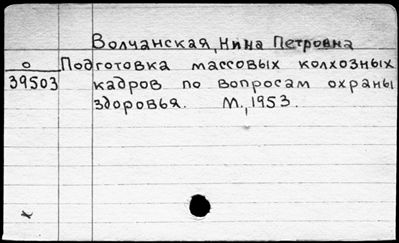 Волчанская, Нина Петровна
О Подготовка массовых колхозных
39503 кадров по вопросам охраны
здоровья. М., 1953.